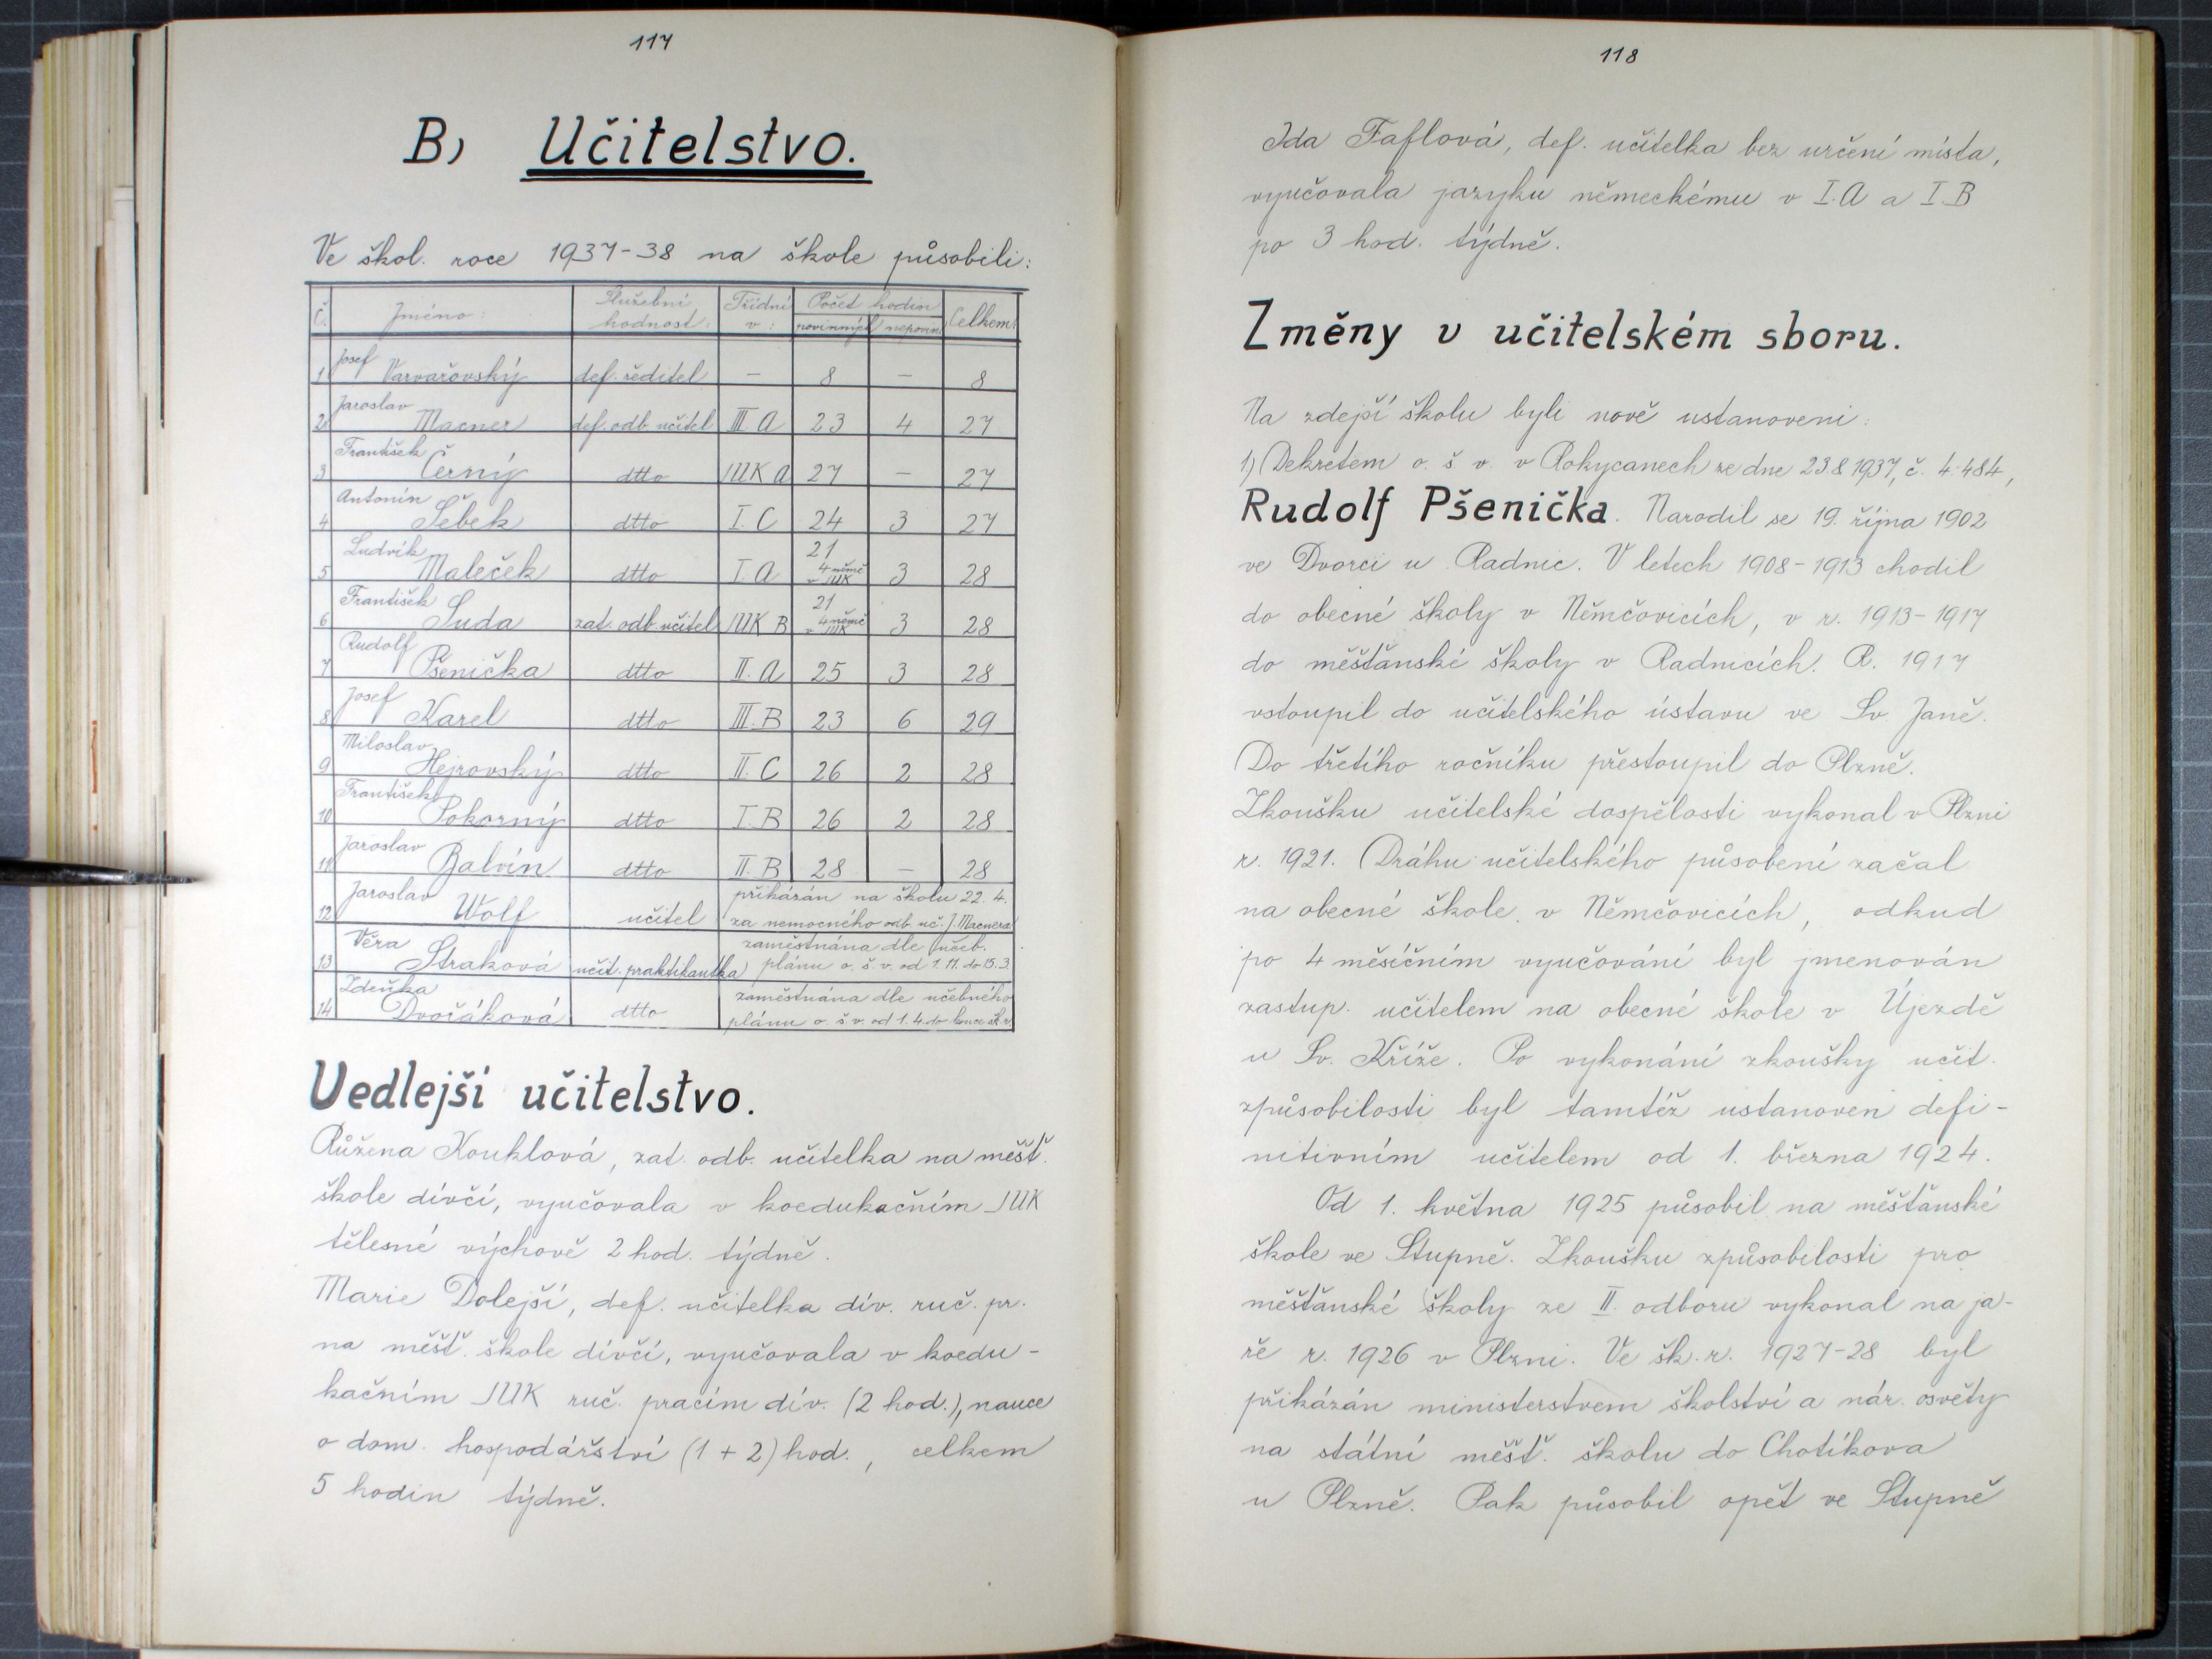 117
B) Učitelstvo.
Ve škol. roce 1937-38 na škole působili:
č. Jméno: Služební hodnost: Třídní v: Počet hodin povinných nepovin. Celkem:
1 Josef Varvařovský def. ředitel — 8 — 8
2 Jaroslav Macner def. odb. učitel III. A 23 4 27
3 František Černý dtto IUK A 27 — 27
4 Antonín Šebek dtto I. C 24 3 27
5 Ludvík Maleček dtto I. A 21 4 němč v IUK 3 28
6 František Suda zat. odb. učitel IUK B 21 4 němč v IUK 3 28
7 Rudolf Pšenička dtto II. A 25 3 28
8 Josef Karel dtto III. B 23 6 29
9 Miloslav Hejrovský dtto II. C 26 2 28
10 František Pokorný dtto I. B 26 2 28
11 Jaroslav Balvín dtto II. B 28 — 28
12 Jaroslav Wolf učitel přikázán na školu 22. 4. za nemocného odb. uč. J. Macnera
13 Věra Straková učit. praktikantka zaměstnána dle učeb. plánu o. š. v. od 1. 11. do 15. 3.
14 Zdeňka Dvořáková dtto zaměstnána dle učebného plánu o. š. v. od 1. 4. do konce šk. r.
Vedlejší učitelstvo.
Růžena Kouklová, zat. odb. učitelka na měšť.
škole dívčí, vyučovala v koedukačním IUK
tělesné výchově 2 hod. týdně.
Marie Dolejší, def. učitelka dív. ruč. pr.
na měšť. škole dívčí, vyučovala v koedu-
kačním IUK ruč. pracím dív. (2 hod.), nauce
o dom. hospodářství (1 + 2) hod., celkem
5 hodin týdně.
118
Ida Faflová, def. učitelka bez určení místa,
vyučovala jazyku německému v I. A a I. B
po 3 hod. týdně.
Změny v učitelském sboru.
Na zdejší školu byli nově ustanoveni:
1) Dekretem o. š. v. v Rokycanech ze dne 23.8.1937, č. 4.484,
Rudolf Pšenička. Narodil se 19. října 1902
ve Dvorci u Radnic. V letech 1908-1913 chodil
do obecné školy v Němčovicích, v r. 1913-1917
do měšťanské školy v Radnicích. R. 1917
vstoupil do učitelského ústavu ve Sv. Janě.
Do třetího ročníku přestoupil do Plzně.
Zkoušku učitelské dospělosti vykonal v Plzni
r. 1921. Dráhu učitelského působení začal
na obecné škole v Němčovicích, odkud
po 4 měsíčním vyučování byl jmenován
zastup. učitelem na obecné škole v Újezdě
u Sv. Kříže. Po vykonání zkoušky učit.
způsobilosti byl tamtéž ustanoven defi-
nitivním učitelem od 1. března 1924.
Od 1. května 1925 působil na měšťanské
škole ve Stupně. Zkoušku způsobilosti pro
měšťanské školy ze II. odboru vykonal na ja-
ře r. 1926 v Plzni. Ve šk. r. 1927-28 byl
přikázán ministerstvem školství a nár. osvěty
na státní měšť. školu do Chotíkova
u Plzně. Pak působil opět ve Stupně